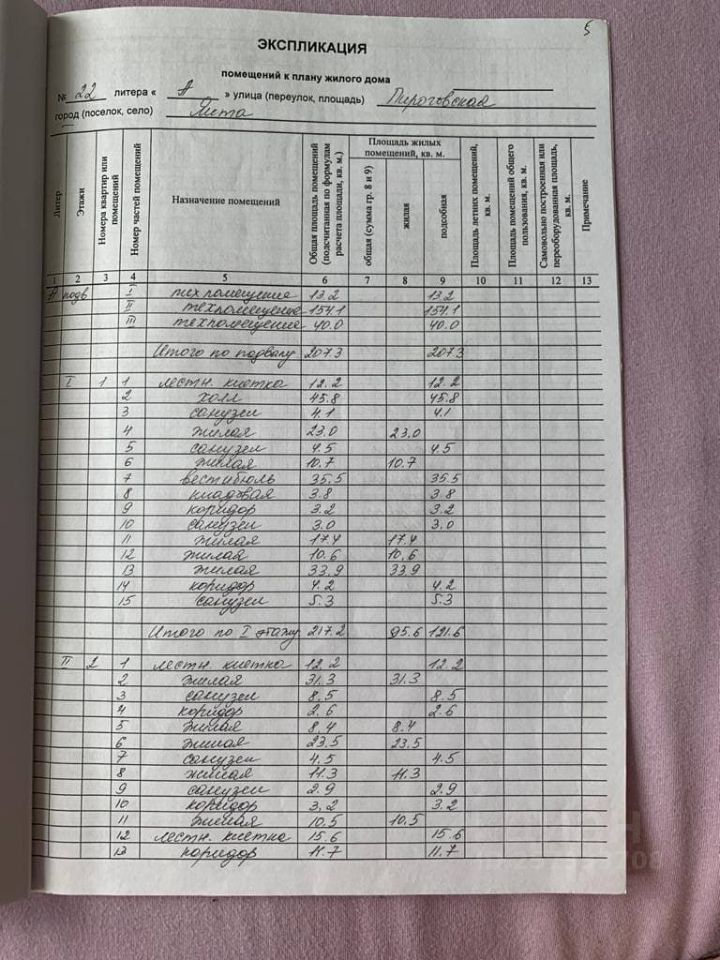 5
ЭКСПЛИКАЦИЯ
помещений к плану жилого дома
№ 22 литера « А » улица (переулок, площадь) Пироговская
город (поселок, село) Ялта
Литер Этажи Номера квартир или помещений Номер частей помещений Назначение помещений Общая площадь помещений (подсчитанная по формулам расчета площади, кв. м.) Площадь жилых помещений, кв. м. общая (сумма гр. 8 и 9) жилая подсобная Площадь летних помещений, кв. м. Площадь помещений общего пользования, кв. м. Самовольно построенная или переоборудованная площадь, кв. м. Примечание
1 2 3 4 5 6 7 8 9 10 11 12 13
А подв I тех помещение 13.2 13.2
II техпомещение 154.1 154.1
III техпомещение 40.0 40.0
Итого по подвалу 207.3 207.3
I 1 1 лестн. клетка 12.2 12.2
2 холл 45.8 45.8
3 санузел 4.1 4.1
4 жилая 23.0 23.0
5 санузел 4.5 4.5
6 жилая 10.7 10.7
7 вестибюль 35.5 35.5
8 кладовая 3.8 3.8
9 коридор 3.2 3.2
10 санузел 3.0 3.0
11 жилая 17.4 17.4
12 жилая 10.6 10.6
13 жилая 33.9 33.9
14 коридор 4.2 4.2
15 санузел 5.3 5.3
Итого по I этажу 217.2 95.6 121.6
II 2 1 лестн. клетка 12.2 12.2
2 жилая 31.3 31.3
3 санузел 8.5 8.5
4 коридор 2.6 2.6
5 жилая 8.4 8.4
6 жилая 23.5 23.5
7 санузел 4.5 4.5
8 жилая 11.3 11.3
9 санузел 2.9 2.9
10 коридор 3.2 3.2
11 жилая 10.5 10.5
12 лестн. клетка 15.6 15.6
13 коридор 11.7 11.7